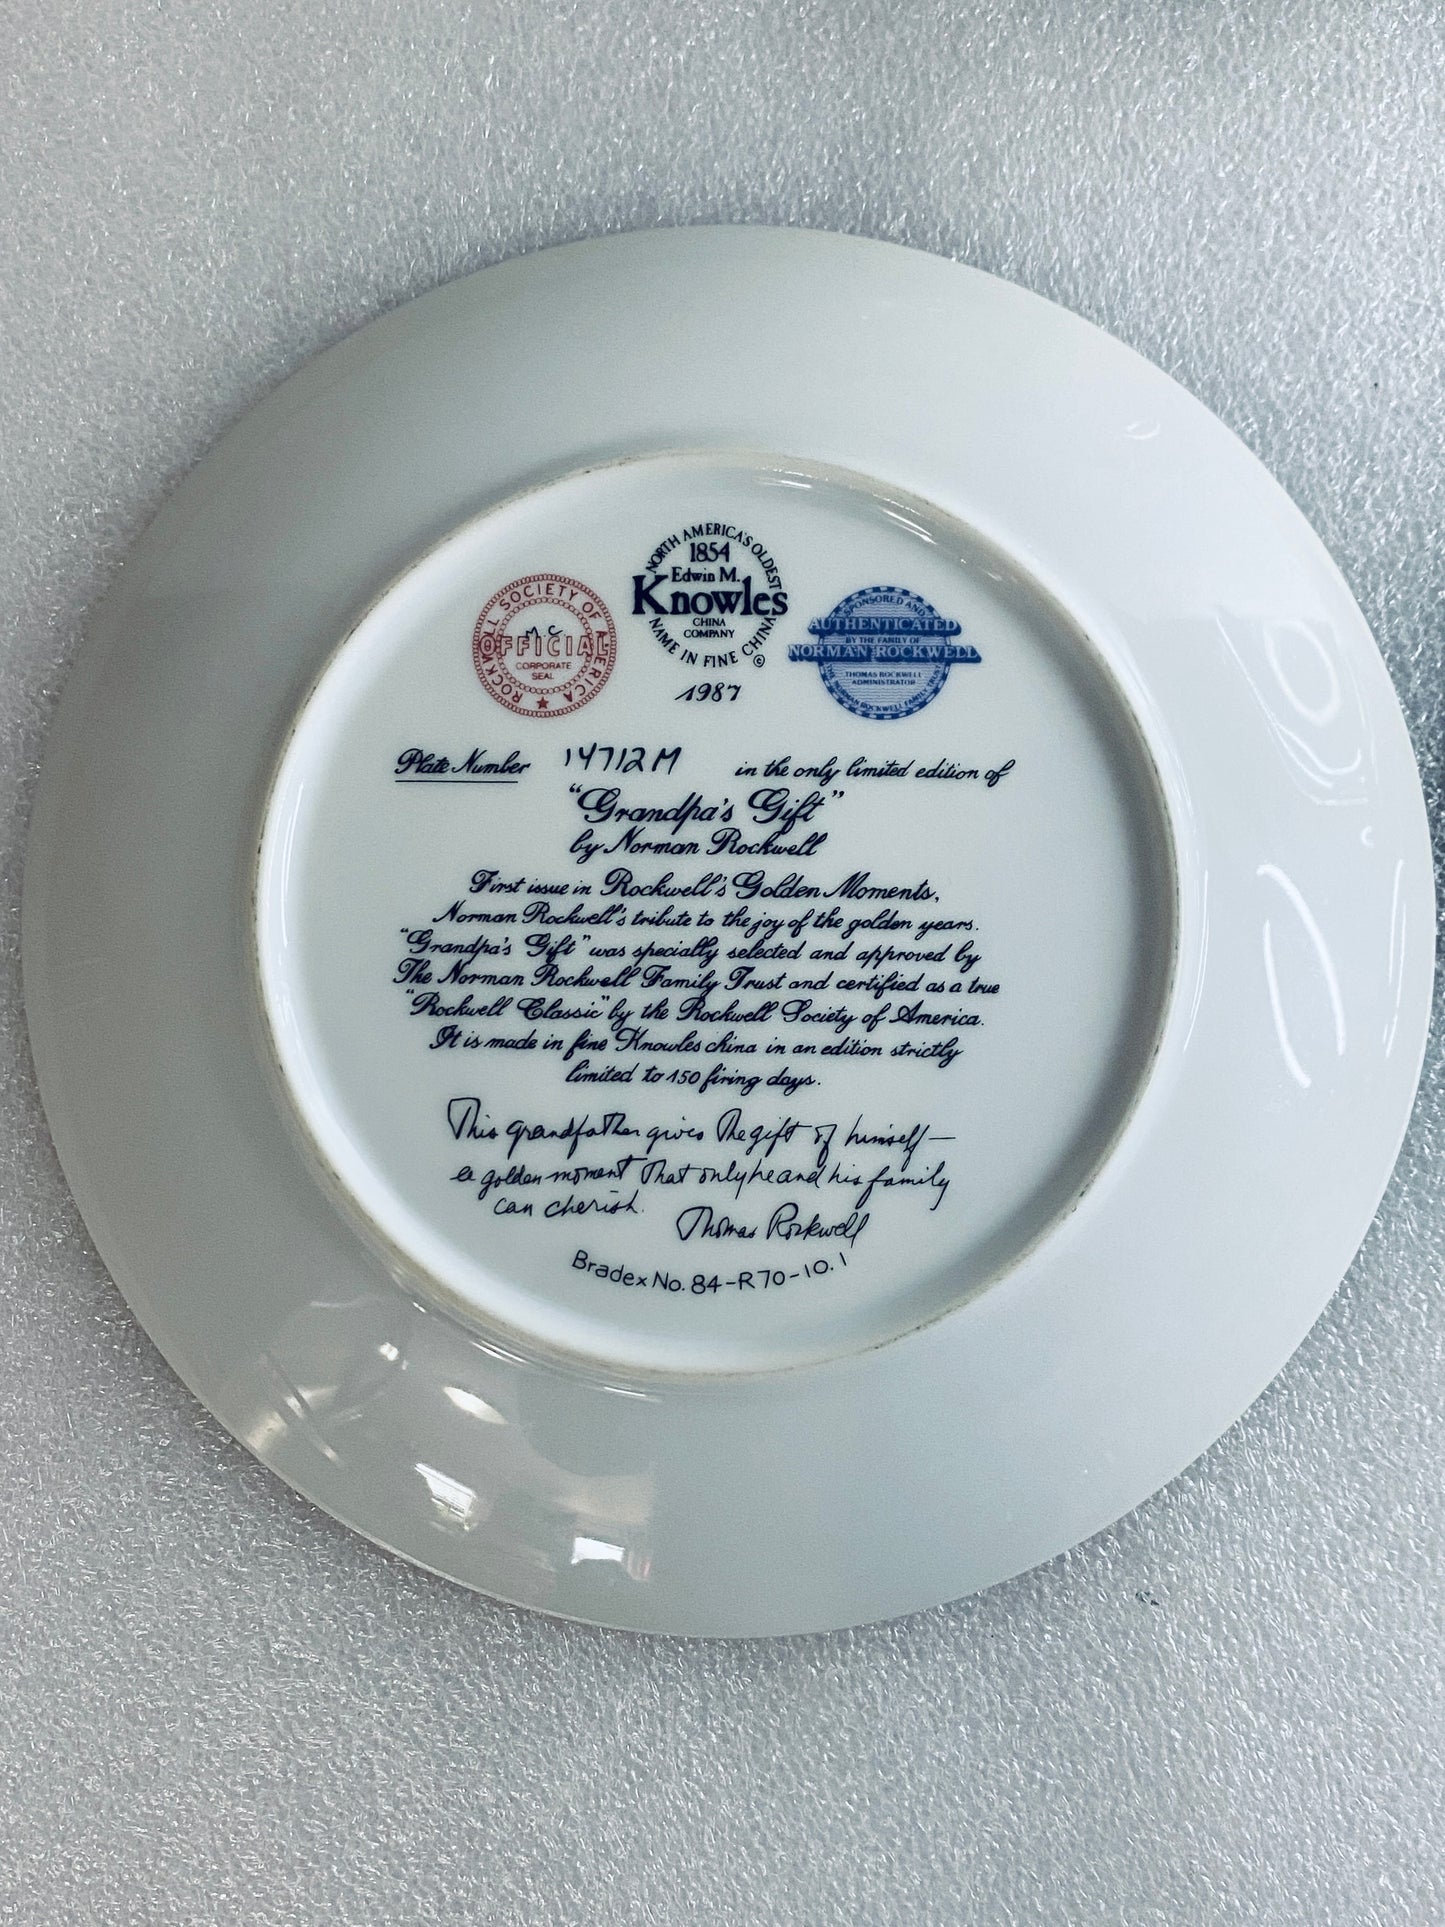 NORTH AMERICA'S OLDEST
1854
Edwin M.
Knowles
CHINA
COMPANY
NAME IN FINE CHINA
©
1987
ROCKWELL SOCIETY OF AMERICA
M C
OFFICIAL
CORPORATE
SEAL
SPONSORED AND
AUTHENTICATED
BY THE FAMILY OF
NORMAN ROCKWELL
THOMAS ROCKWELL
ADMINISTRATOR
THE NORMAN ROCKWELL FAMILY TRUST
Plate Number 14712M in the only limited edition of
"Grandpa's Gift"
by Norman Rockwell
First issue in Rockwell's Golden Moments,
Norman Rockwell's tribute to the joy of the golden years.
"Grandpa's Gift" was specially selected and approved by
The Norman Rockwell Family Trust and certified as a true
"Rockwell Classic" by the Rockwell Society of America.
It is made in fine Knowles china in an edition strictly
limited to 150 firing days.
This grandfather gives the gift of himself —
a golden moment that only he and his family
can cherish.
Thomas Rockwell
Bradex No. 84-R70-10.1